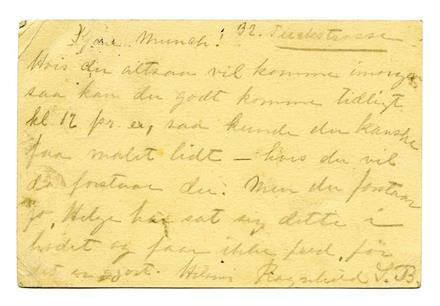 Kjære Munch! 32. Türkstrasse
Hvis du altsaa vil komme imorgen
saa kan du godt komme tidligt
kl. 12 pr. ex, saa kunde du kanske
faa malet lidt – hvis du vil
da forstaar du. Men du forstaar
jo, Helge har sat sig dette i
hodet og faar ikke fred, før
det er gjort. Hilsen Ragnhild S. B.